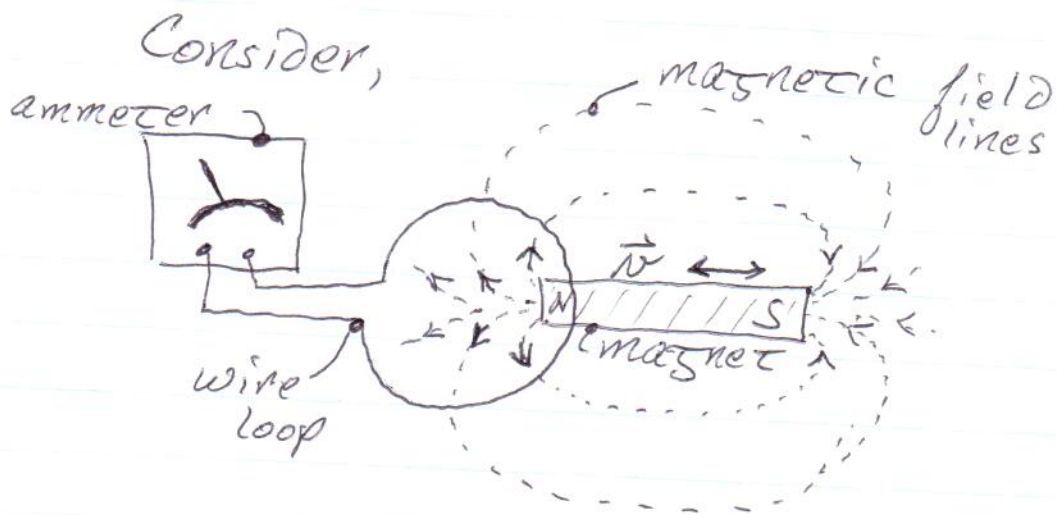 Consider,
ammeter
magnetic field
lines
v
N
S
magnet
wire
loop